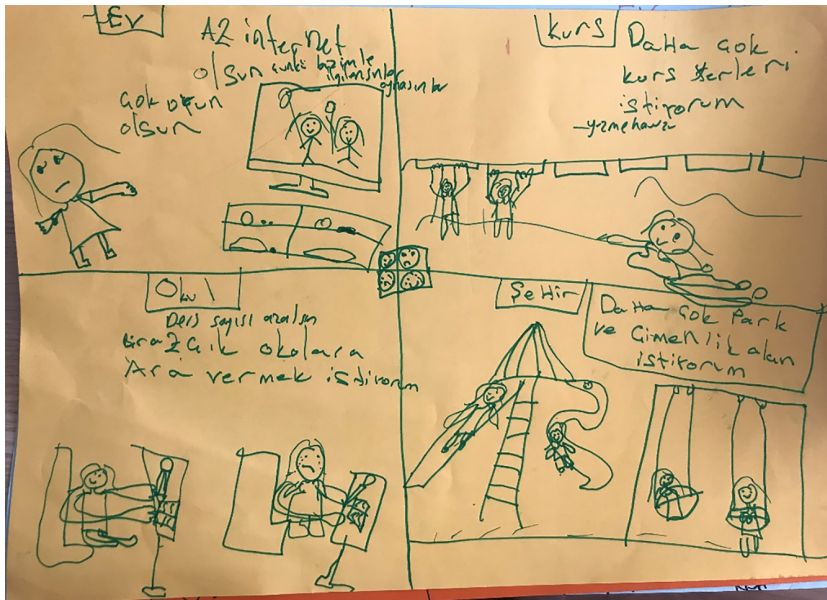 Ev
Az internet
olsun çünkü bizimle
ilgilensinler
oynasınlar
çok oyun
olsun
Kurs
Daha çok
kurs yerleri
istiyorum
-yüzme havuz
Okul
Ders sayısı azalsın
birazcık okulara
Ara vermek istiyorum
Şehir
Daha çok Park
ve Çimenlik alan
istiyorum